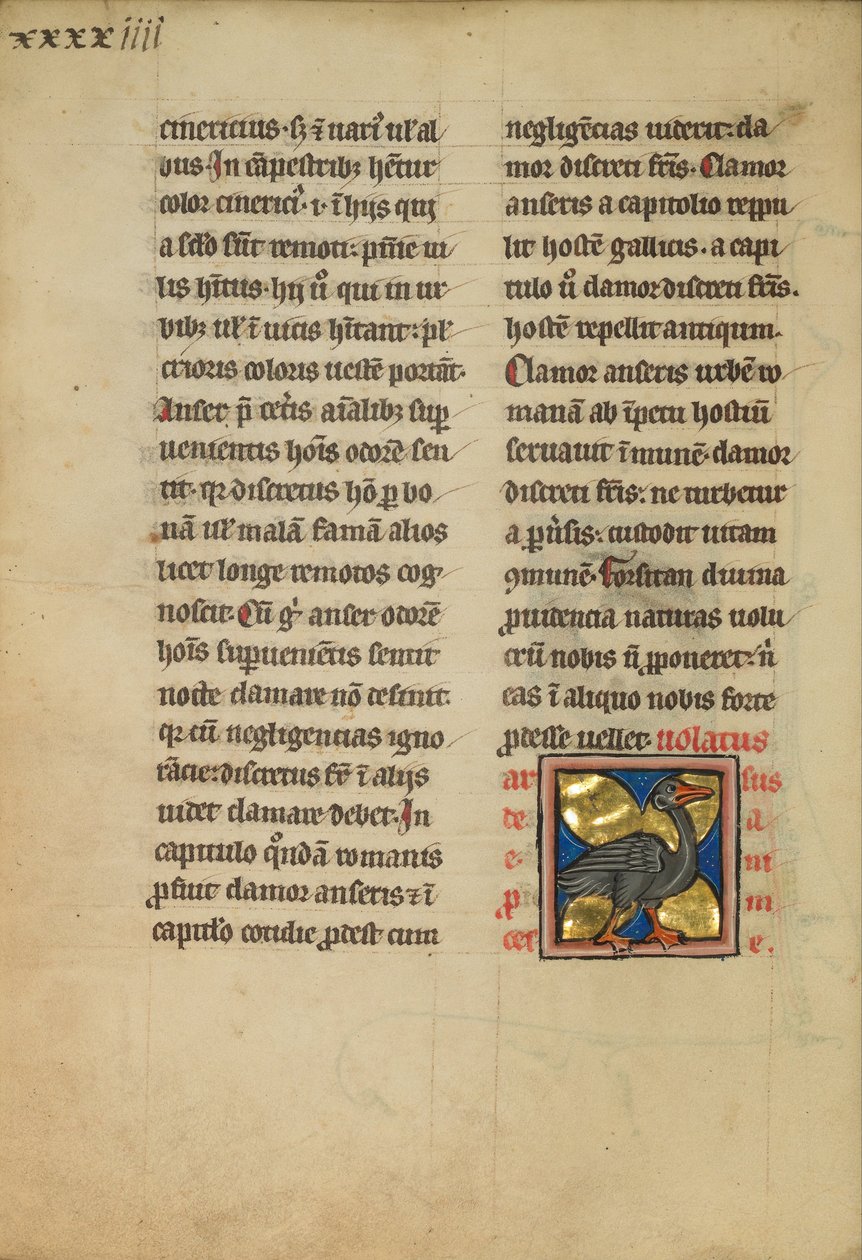 xxxxiiii
cinericius· sꝫ ⁊ uariꝰ uł al
bus· In cāpestribꝫ hētur
color cinericiꝰ· i· ī hijs qui
a sclo sūt remoti: pn̄ie ui
lis hītus· hij ũ qui in ur
bibꝫ uł ī uicis hītant: pł
crioris coloris uestē portāt·
Anser p̄ cetis aīalibꝫ suꝑ
uenientis hoīs odorē sen
tit· qr discretus hō ꝑ bo
nā uł malā famā alios
licet longe remotos cog
noscit· Cū g̊ anser odorē
hoīs suꝑueniētis sentit
nocte clamare nō desinit·
qr cū negligencias igno
rācie: discretus fr̄ ī alijs
uidet clamare debet· In
capitulo qͦndā romanis
ꝓfuit clamor anseris ⁊ ī
capitlo cotidie ꝓdest cum
negligēcias uiderit: cla
mor discreti fr̄is· Clamor
anseris a capitolio reppu
lit hostē gallicis· a capi
tulo ũ clamor discreti fr̄is·
hostē repellit antiqum·
Clamor anseris urbē ro
manā ab īpetu hostiū
seruauit īmunē· clamor
discreti fr̄is: ne turbetur
a ꝑuꝰsis: custodit uitam
ꝯmunē· Forsitan diuina
ꝓuidencia naturas uolu
crū nobis n̄ ꝓponeret: nͥ
eas ī aliquo nobis forte
ꝓdesse uellet· uolatus
ar sus
de a
e· ni
ꝓ m
cer e.